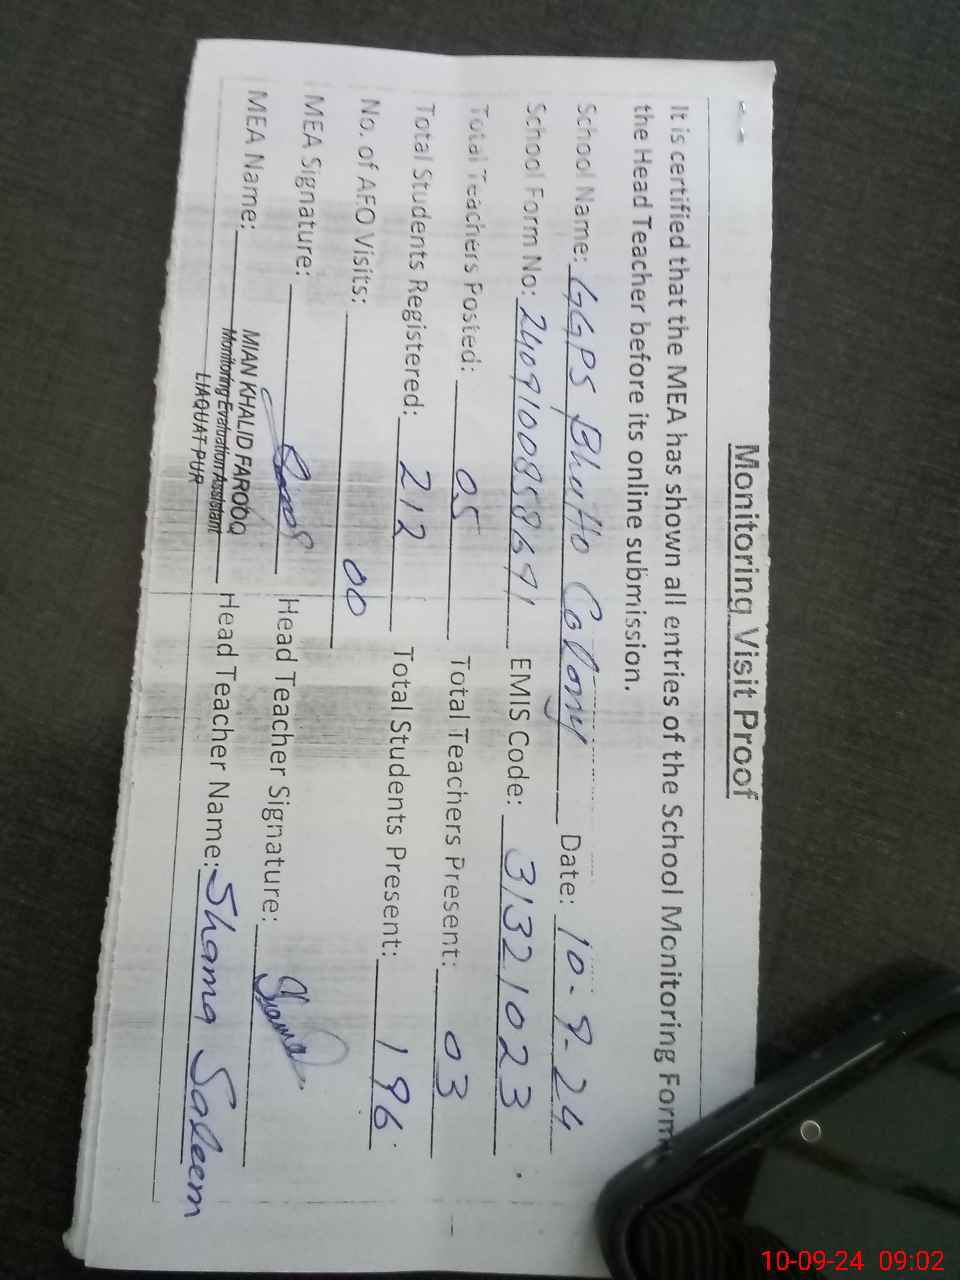 Monitoring Visit Proof
It is certified that the MEA has shown all entries of the School Monitoring Form
the Head Teacher before its online submission.
School Name: GGPS Bhutto Colony Date: 10-9-24
School Form No: EMIS Code: 31321023
Total Teachers Posted: 05 Total Teachers Present: 03
Total Students Registered: 212 Total Students Present: 196
No. of AEO Visits: 00
MEA Signature: Head Teacher Signature: Shama
MEA Name: MIAN KHALID FAROOQ Head Teacher Name: Shama Saleem
Monitoring Evaluation Assistant
LIAQUAT PUR
10-09-24 09:02